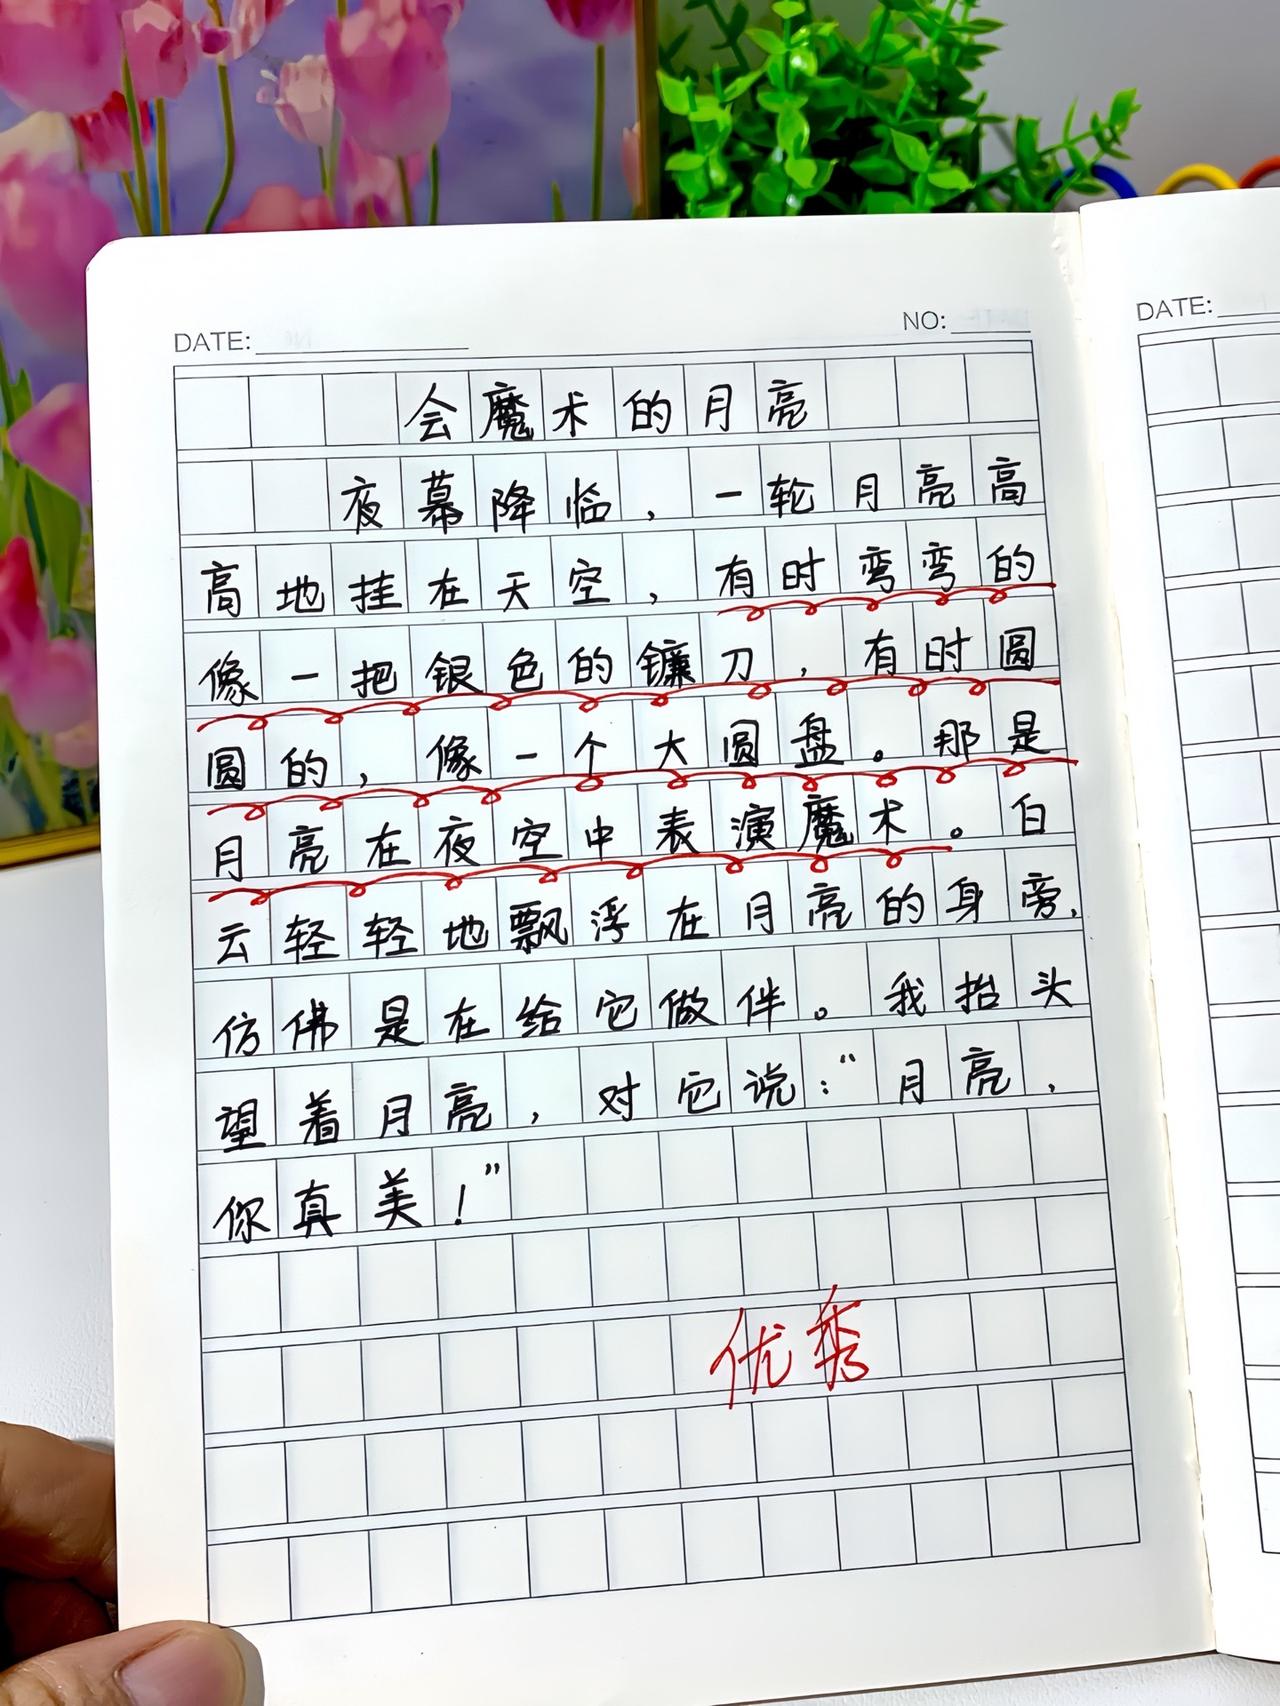 DATE:
NO:
会魔术的月亮
夜幕降临，一轮月亮高
高地挂在天空，有时弯弯的
像一把银色的镰刀，有时圆
圆的，像一个大圆盘。那是
月亮在夜空中表演魔术。白
云轻轻地飘浮在月亮的身旁，
仿佛是在给它做伴。我抬头
望着月亮，对它说：“月亮，
你真美！”
优秀
DATE: